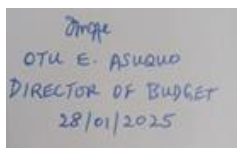 OTU E. ASUQUO
DIRECTOR OF BUDGET
28/01/2025